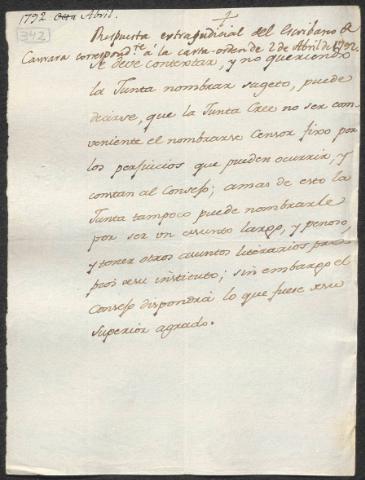 1792. Abril.
342
Respuesta extrajudicial del Escribano de
Camara correspond.te á la carta-orden de 2 de Abril de 1792.
Se deve contextar, y no queriendo
la Junta nombrar sugeto, puede
decirse, que la Junta Cree no ser con
veniente el nombrarse Censor fixo por
los perjuicios que pueden ocurrir, y
constan al Consejo; amas de esto la
Junta tampoco puede nombrarle
por ser un asunto largo, y penoso,
y tener otros asuntos literarios pro
pios de su instituto; sin embargo el
Consejo dispondrá lo que fuese de su
Superior agrado.